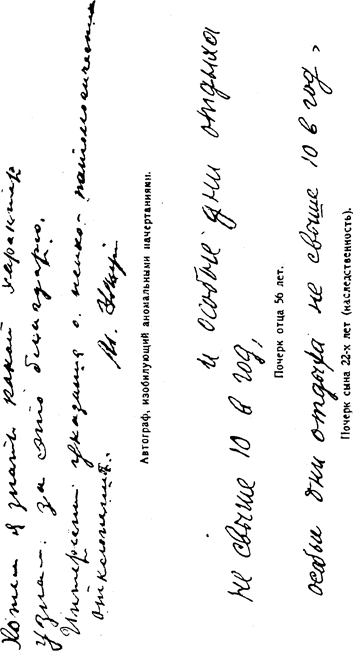 Хотел я знать какой характер
узнал. за это благодарю.
Интересны указания о психо-патологических
отклонениях.
Автограф, изобилующий аномальными начертаниями.
и особые дни отдыха
не свыше 10 в год,
Почерк отца 56 лет.
особые дни отдыха не свыше 10 в год,
Почерк сына 22-х лет (наследственность).